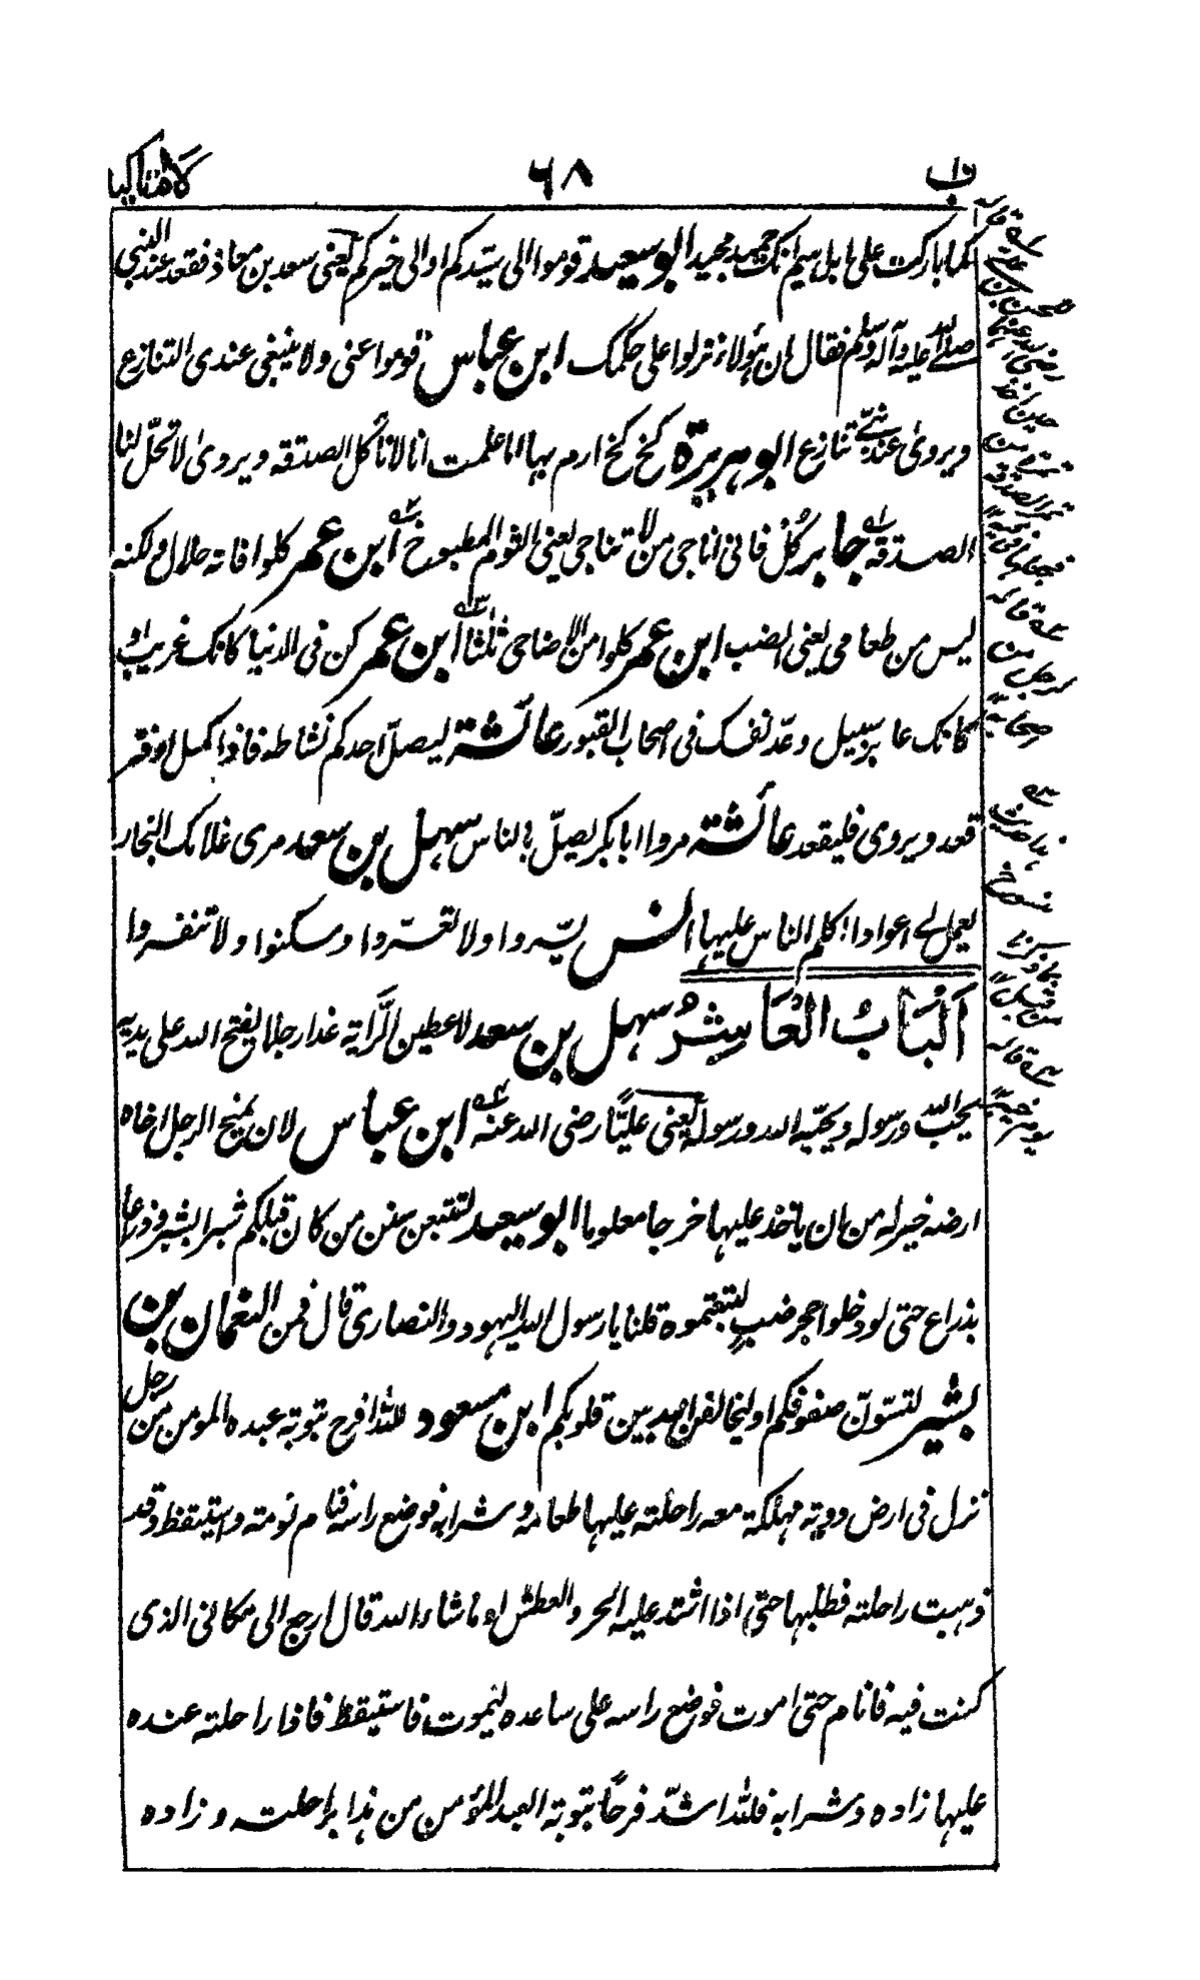 باب ٦٨
كما باركت على ابراهيم انك حميد مجيد ابو سعيد قوموا الى سيدكم او الى خيركم يعنى سعد بن معاذ فقعد عند النبى
صلى الله عليه وآله وسلم فقال ان هؤلاء نزلوا على حكمك ابن عباس قوموا عنى ولا ينبغى عندى التنازع
ويروى عند نبى تنازع ابو هريرة كخ كخ ارم بها اما علمت انا لا نأكل الصدقه ويروى لا تحل لنا
الصدقه جابر كل فانى اناجى من لا تناجى يعنى الثوم المطبوخ ابن عمر كلوا فانه حلال ولكنه
ليس من طعامى يعنى الضب ابن عمر كلوا من الاضاحى ثلثا ابن عمر كن فى الدنيا كانك غريب او
كانك عابر سبيل وعد نفسك فى اصحاب القبور عائشة ليصل احدكم نشاطه فاذا كسل او فتر
قعد ويروى فليقعد عائشة مروا ابا بكر يصل بالناس سهل بن سعد مرى غلامك النجار
يعمل لى اعوادا اكلم الناس عليها انس يسروا ولا تعسروا وسكنوا ولا تنفروا
اَلْبَابُ الْعَاشِرُ سهل بن سعد لاعطين الراية غدا رجلا يفتح الله على يديه
يحب الله ورسوله ويحبه الله ورسوله يعنى عليا رضى الله عنه ابن عباس لان يمنح الرجل اخاه
ارضه خير له من ان ياخذ عليها خرجا معلوما ابو سعيد لتتبعن سنن من كان قبلكم شبرا بشبر وذراعا
بذراع حتى لو دخلوا جحر ضب لتبعتموه قلنا يا رسول الله اليهود والنصارى قال فمن النعمان بن
بشير لتسون صفوفكم او ليخالفن الله بين قلوبكم ابن مسعود لله افرح بتوبة عبده المومن من رجل
نزل فى ارض دوية مهلكة معه راحلته عليها طعامه وشرابه فوضع راسه فنام نومته واستيقظ وقد
ذهبت راحلته فطلبها حتى اذا اشتد عليه الحر والعطش او ما شاء الله قال ارجع الى مكانى الذى
كنت فيه فانام حتى اموت فوضع راسه على ساعده ليموت فاستيقظ فاذا راحلته عنده
عليها زاده وشرابه فلله اشد فرحا بتوبة العبد المؤمن من هذا براحلته وزاده